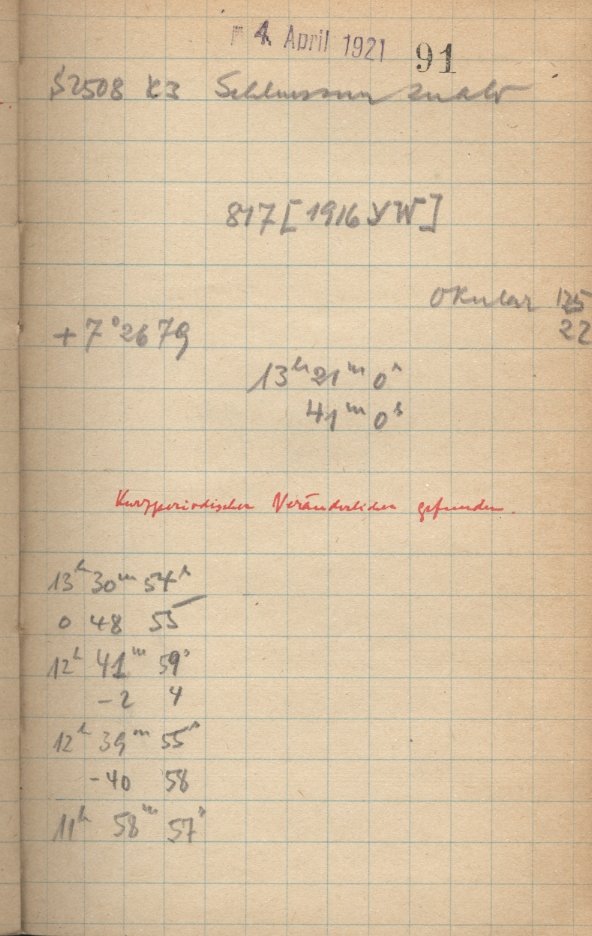 4. April 1921 91
S2508 K3
817 [1916 YW]
Okular 125
22
+7°2679
13ʰ 21ᵐ 0ˢ
41ᵐ 0ˢ
Kurzperiodischen Veränderlichen gefunden.
13ʰ 30ᵐ 54ˢ
0 48 55
12ʰ 41ᵐ 59ˢ
-2 4
12ʰ 39ᵐ 55ˢ
-40 58
11ʰ 58ᵐ 57ˢ